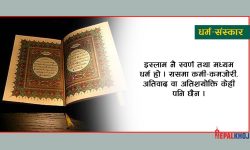 धर्म-संस्कार
इस्लाम नै स्वर्ण तथा मध्यम
धर्म हो । यसमा कमी-कमजोरी,
अतिवाद वा अतिशयोक्ति केही
पनि छैन ।
NEPALKHOJ